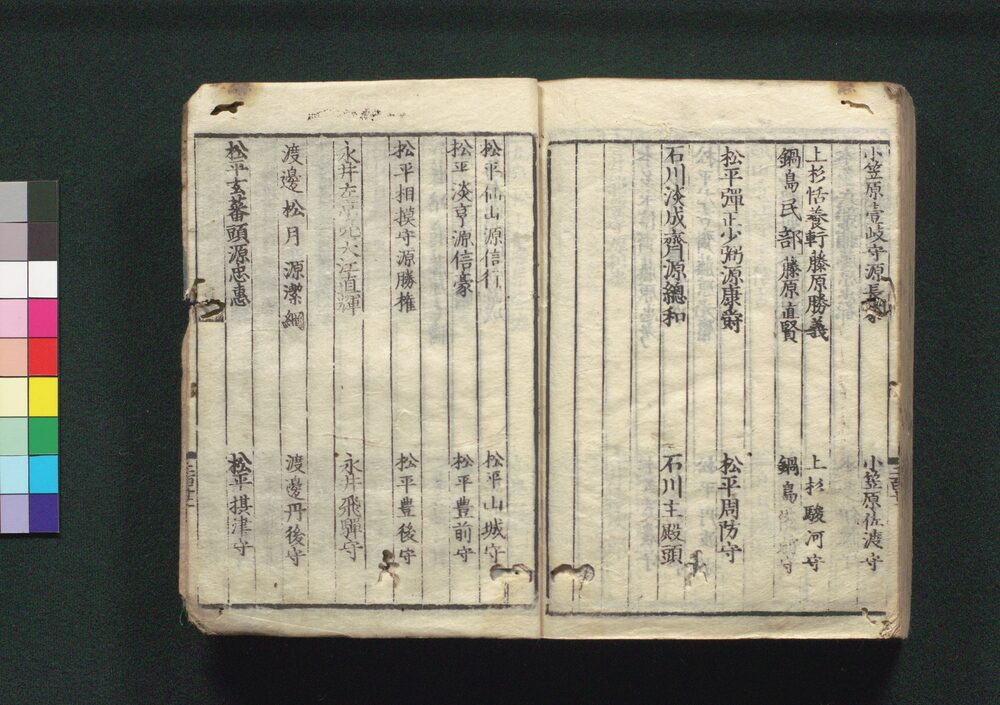 小笠原壹岐守源長 小笠原佐渡守
上杉恬養軒藤原勝義 上杉駿河守
鍋島民部藤原直賢 鍋島 守
松平彈正少弼源康 松平周防守
石川淡成齊源總和 石川主殿頭
松平仙山源信行 松平山城守
松平淡亨源信豪 松平豊前守
松平相摸守源勝權 松平豊後守
永井左 大江直輝 永井飛騨守
渡邊松月源潔綱 渡邊丹後守
松平玄蕃頭源忠惠 松平摂津守